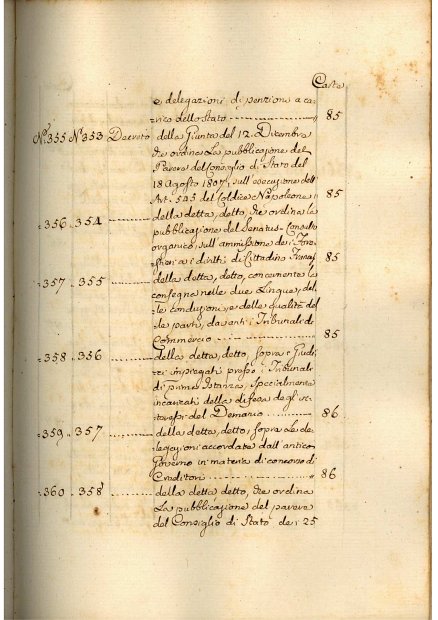 Carte
e delegazioni di penzioni a ca=
rico dello Stato ............ " 85
N.º 355 N.º 353 Decreto della Giunta del 12. Dicembre
che ordina La pubblicazione del
Parere del Consiglio di Stato del
18 Agosto 1807, sull'esecuzione dell'
Art. 545 del Codice Napoleone " 85
" 356 " 354 ............ della detta, detto, che ordina la
pubblicazione del Senatus-Consulto
organico, sull'ammissione de i Fore=
stieri a i diritti di Cittadino Francese " 85
" 357 " 355 ............ della detta, detto, concernente la
consegna nelle due Lingue, del=
le conduzioni, e delle qualità del=
le parti, davanti i Tribunali di
Commercio ............ " 85
" 358 " 356 ............ della detta, detto, sopra i Giudi=
zi impegati presso i Tribunali
di prima Istanza, specialmente
incaricati della difesa degli in=
teressi del Demanio ............ 86
" 359 " 357 ............ della detta, detto, sopra Le de=
legazioni accordate dall'antico
Governo in materia di concorso di
Creditori ............ " 86
" 360 " 358 ............ della detta detto, che ordina
La pubblicazione del parere
del Consiglio di Stato de i 25